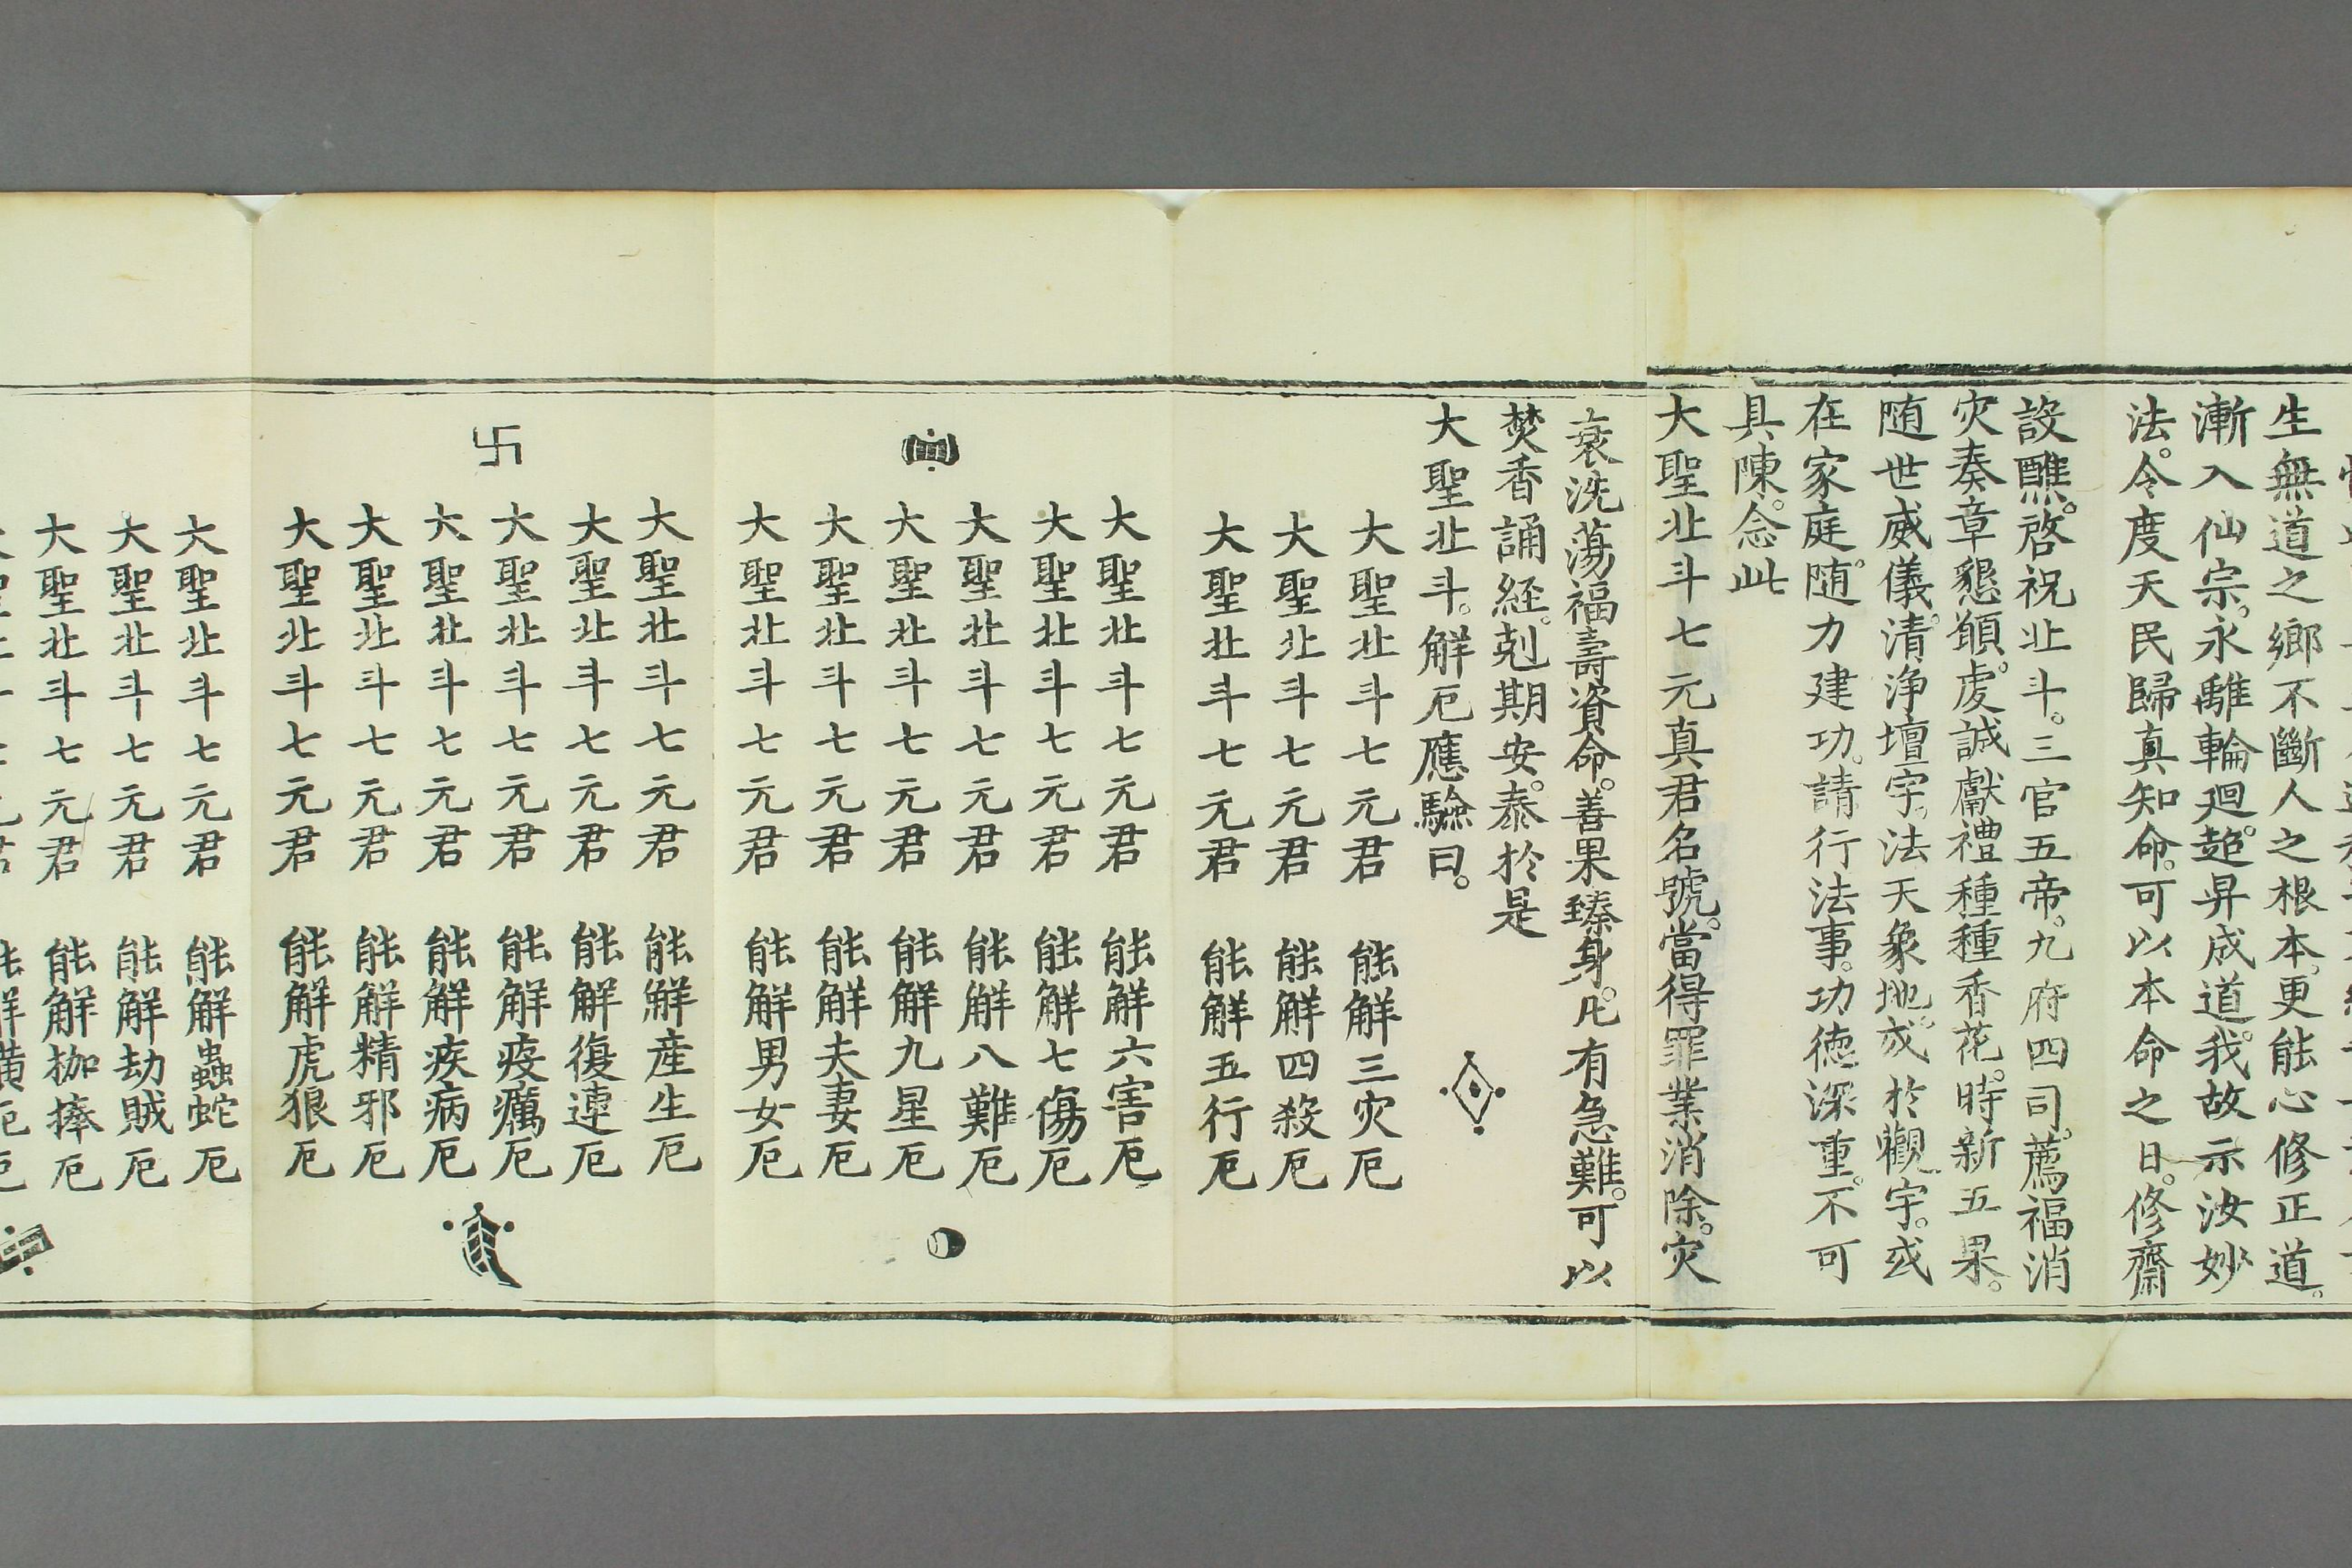 生無道之鄉不斷人之根本。更能心修正道。
漸入仙宗。永離輪廻。超昇成道。我故示汝妙
法。令度天民歸真知命。可以本命之日。修齋
設醮。啓祝北斗。三官五帝。九府四司。薦福消
灾奏章懇願。虔誠獻禮種種香花。時新五果。
随世威儀。清浄壇宇。法天象地。或於觀宇。或
在家庭。随力建功。請行法事。功德深重。不可
具陳。念此
大聖北斗七元真君名號。當得罪業消除。灾
衰洗蕩福壽資命。善果臻身。凡有急難。可以
焚香誦経。剋期安。泰於是
大聖北斗。解厄應驗曰。
大聖北斗七元君 能解三灾厄
大聖北斗七元君 能解四殺厄
大聖北斗七元君 能解五行厄
大聖北斗七元君 能解六害厄
大聖北斗七元君 能解七傷厄
大聖北斗七元君 能解八難厄
大聖北斗七元君 能解九星厄
大聖北斗七元君 能解夫妻厄
大聖北斗七元君 能解男女厄
卐
大聖北斗七元君 能解産生厄
大聖北斗七元君 能解復連厄
大聖北斗七元君 能解疫癘厄
大聖北斗七元君 能解疾病厄
大聖北斗七元君 能解精邪厄
大聖北斗七元君 能解虎狼厄
大聖北斗七元君 能解蟲蛇厄
大聖北斗七元君 能解劫賊厄
大聖北斗七元君 能解枷捧厄